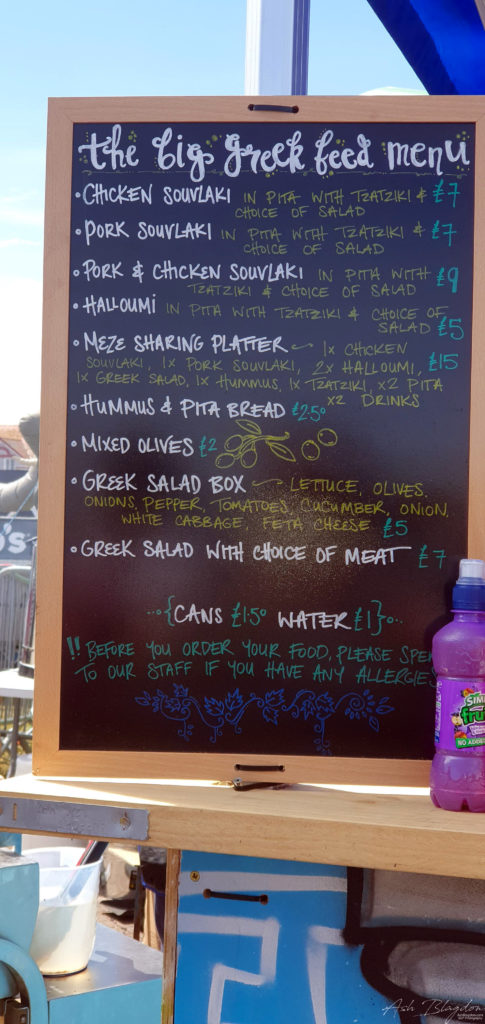 the big greek feed menu
• CHICKEN SOUVLAKI IN PITA WITH TZATZIKI & £7
CHOICE OF SALAD
• PORK SOUVLAKI IN PITA WITH TZATZIKI & £7
CHOICE OF SALAD
• PORK & CHICKEN SOUVLAKI IN PITA WITH £9
TZATZIKI & CHOICE OF SALAD
• HALLOUMI IN PITA WITH TZATZIKI & CHOICE OF
SALAD £5
• MEZE SHARING PLATTER ~ 1x CHICKEN
SOUVLAKI, 1x PORK SOUVLAKI, 2x HALLOUMI, £15
1x GREEK SALAD, 1x HUMMUS, 1x TZATZIKI, x2 PITA
x2 DRINKS
• HUMMUS & PITA BREAD £2.50
• MIXED OLIVES £2
• GREEK SALAD BOX ~ LETTUCE, OLIVES,
ONIONS, PEPPER, TOMATOES, CUCUMBER, ONION,
WHITE CABBAGE, FETA CHEESE £5
• GREEK SALAD WITH CHOICE OF MEAT £7
{CANS £1.50 WATER £1}
!! BEFORE YOU ORDER YOUR FOOD, PLEASE SPE
TO OUR STAFF IF YOU HAVE ANY ALLERGIES
SIM
fru
NO ADDE
O'S
Ash Blagdon